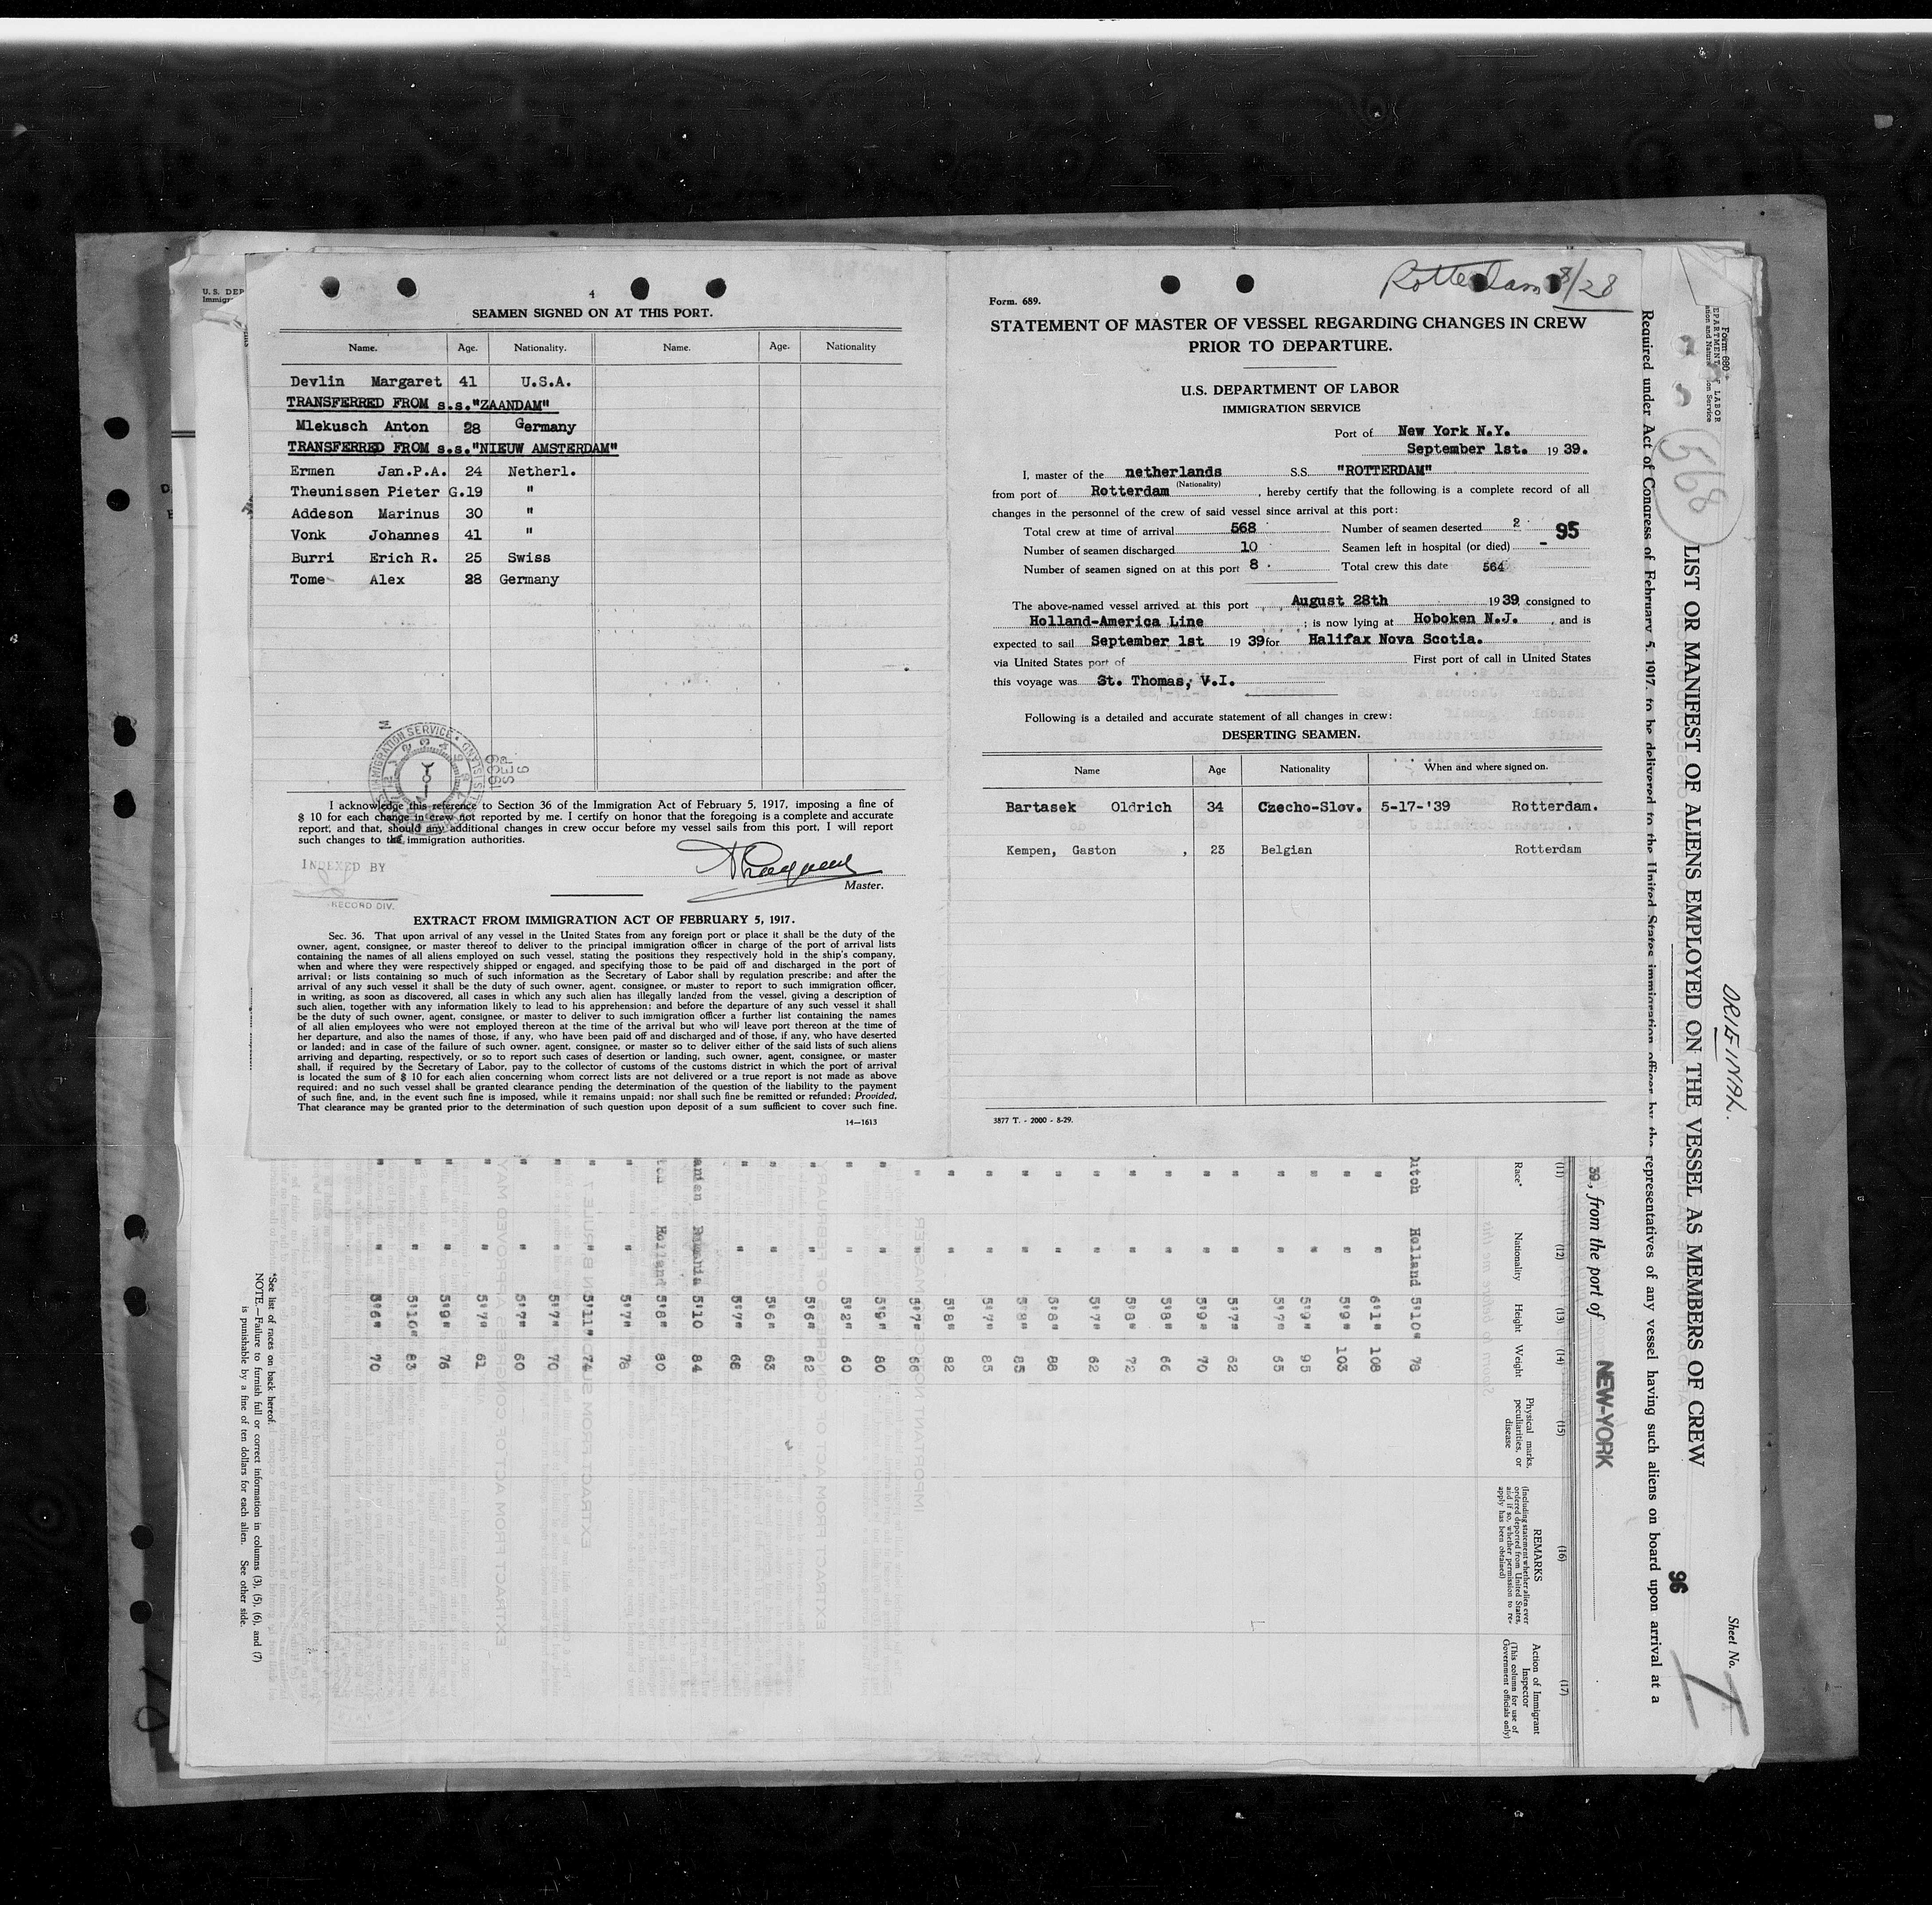 4
SEAMEN SIGNED ON AT THIS PORT.
Name. Age. Nationality. Name. Age. Nationality
Devlin Margaret 41 U.S.A.
TRANSFERRED FROM s.s."ZAANDAM"
Mlekusch Anton 28 Germany
TRANSFERRED FROM s.s."NIEUW AMSTERDAM"
Ermen Jan.P.A. 24 Netherl.
Theunissen Pieter G. 19 "
Addeson Marinus 30 "
Vonk Johannes 41 "
Burri Erich R. 25 Swiss
Tome Alex 28 Germany
1939
SEP
6
I acknowledge this reference to Section 36 of the Immigration Act of February 5, 1917, imposing a fine of
$ 10 for each change in crew not reported by me. I certify on honor that the foregoing is a complete and accurate
report, and that, should any additional changes in crew occur before my vessel sails from this port, I will report
such changes to the immigration authorities.
INDEXED BY
RECORD DIV.
Master.
EXTRACT FROM IMMIGRATION ACT OF FEBRUARY 5, 1917.
Sec. 36. That upon arrival of any vessel in the United States from any foreign port or place it shall be the duty of the
owner, agent, consignee, or master thereof to deliver to the principal immigration officer in charge of the port of arrival lists
containing the names of all aliens employed on such vessel, stating the positions they respectively hold in the ship's company,
when and where they were respectively shipped or engaged, and specifying those to be paid off and discharged in the port of
arrival; or lists containing so much of such information as the Secretary of Labor shall by regulation prescribe; and after the
arrival of any such vessel it shall be the duty of such owner, agent, consignee, or master to report to such immigration officer,
in writing, as soon as discovered, all cases in which any such alien has illegally landed from the vessel, giving a description of
such alien, together with any information likely to lead to his apprehension; and before the departure of any such vessel it shall
be the duty of such owner, agent, consignee, or master to deliver to such immigration officer a further list containing the names
of all alien employees who were not employed thereon at the time of the arrival but who will leave port thereon at the time of
her departure, and also the names of those, if any, who have been paid off and discharged and of those, if any, who have deserted
or landed; and in case of the failure of such owner, agent, consignee, or master so to deliver either of the said lists of such aliens
arriving and departing, respectively, or so to report such cases of desertion or landing, such owner, agent, consignee, or master
shall, if required by the Secretary of Labor, pay to the collector of customs of the customs district in which the port of arrival
is located the sum of $ 10 for each alien concerning whom correct lists are not delivered or a true report is not made as above
required; and no such vessel shall be granted clearance pending the determination of the question of the liability to the payment
of such fine, and, in the event such fine is imposed, while it remains unpaid; nor shall such fine be remitted or refunded: Provided,
That clearance may be granted prior to the determination of such question upon deposit of a sum sufficient to cover such fine.
14—1613
Rotterdam 8/28
Form. 689.
STATEMENT OF MASTER OF VESSEL REGARDING CHANGES IN CREW
PRIOR TO DEPARTURE.
U.S. DEPARTMENT OF LABOR
IMMIGRATION SERVICE
Port of New York N.Y.
September 1st. 19 39.
I, master of the netherlands S.S. "ROTTERDAM"
(Nationality)
from port of Rotterdam, hereby certify that the following is a complete record of all
changes in the personnel of the crew of said vessel since arrival at this port:
Total crew at time of arrival 568 Number of seamen deserted 2 95
Number of seamen discharged 10 Seamen left in hospital (or died) -
Number of seamen signed on at this port 8 Total crew this date 564
The above-named vessel arrived at this port August 28th 19 39, consigned to
Holland-America Line ; is now lying at Hoboken N.J. , and is
expected to sail September 1st 19 39 for Halifax Nova Scotia.
via United States port of First port of call in United States
this voyage was St. Thomas, V.I.
Following is a detailed and accurate statement of all changes in crew:
DESERTING SEAMEN.
Name Age Nationality When and where signed on.
Bartasek Oldrich 34 Czecho-Slov. 5-17-'39 Rotterdam.
Kempen, Gaston , 23 Belgian Rotterdam
3877 T. - 2000 - 8-29.
ORIGINAL.
Sheet No. I
568
LIST OR MANIFEST OF ALIENS EMPLOYED ON THE VESSEL AS MEMBERS OF CREW
96
Required under Act of Congress of February 5, 1917, to be delivered to the United States immigration officer by the representatives of any vessel having such aliens on board upon arrival at a
39, from the port of NEW-YORK
(11) (12) (13) (14) (15) (16) (17)
Race* Nationality Height Weight Physical marks, peculiarities, or disease REMARKS (Including statement whether alien ever ordered deported from United States, and if so, whether permission to reapply has been obtained) Action of Immigrant Inspector (This column for use of Government officials only)
Holland 5'10" 78
" " 6'1" 108
" " 5'9" 103
" " 5'9" 95
" " 5'7" 65
" " 5'7" 62
" " 5'9" 70
" " 5'8" 66
" " 5'8" 72
" " 5'7" 62
" " 5'8" 88
" " 5'8" 85
" " 5'7" 85
" " 5'8" 82
" " 5'7" 66
" " 5'9" 80
" " 5'2" 60
" " 5'6" 62
" " 5'6" 63
" " 5'7" 68
5'10 84
Holland 5'8" 80
" " 5'7" 78
" " 5'11" 74
" " 5'7" 70
" " 5'7" 60
" " 5'7" 61
" " 5'9" 76
" " 5'10" 83
" " 5'6" 70
*See list of races on back hereof.
NOTE.—Failure to furnish full or correct information in columns (3), (5), (6), and (7)
is punishable by a fine of ten dollars for each alien. See other side.